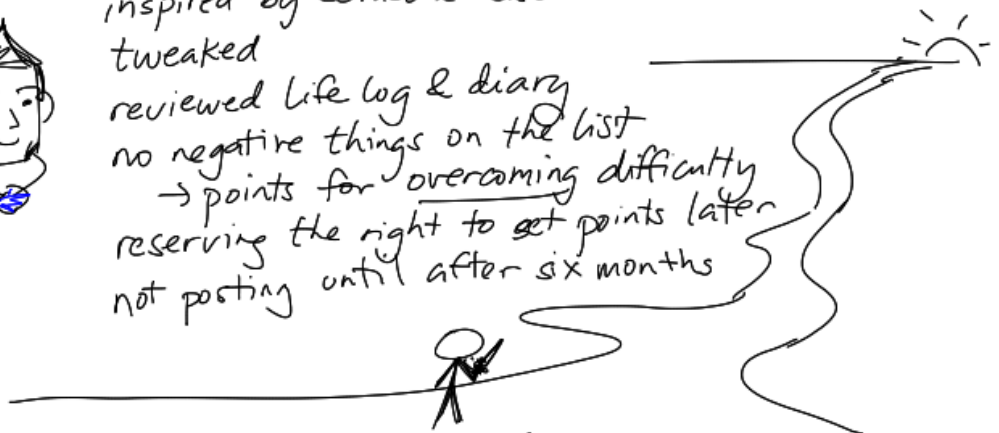 inspired by
tweaked
reviewed life log & diary
no negative things on the list
→ points for overcoming difficulty
reserving the right to set points later
not posting until after six months